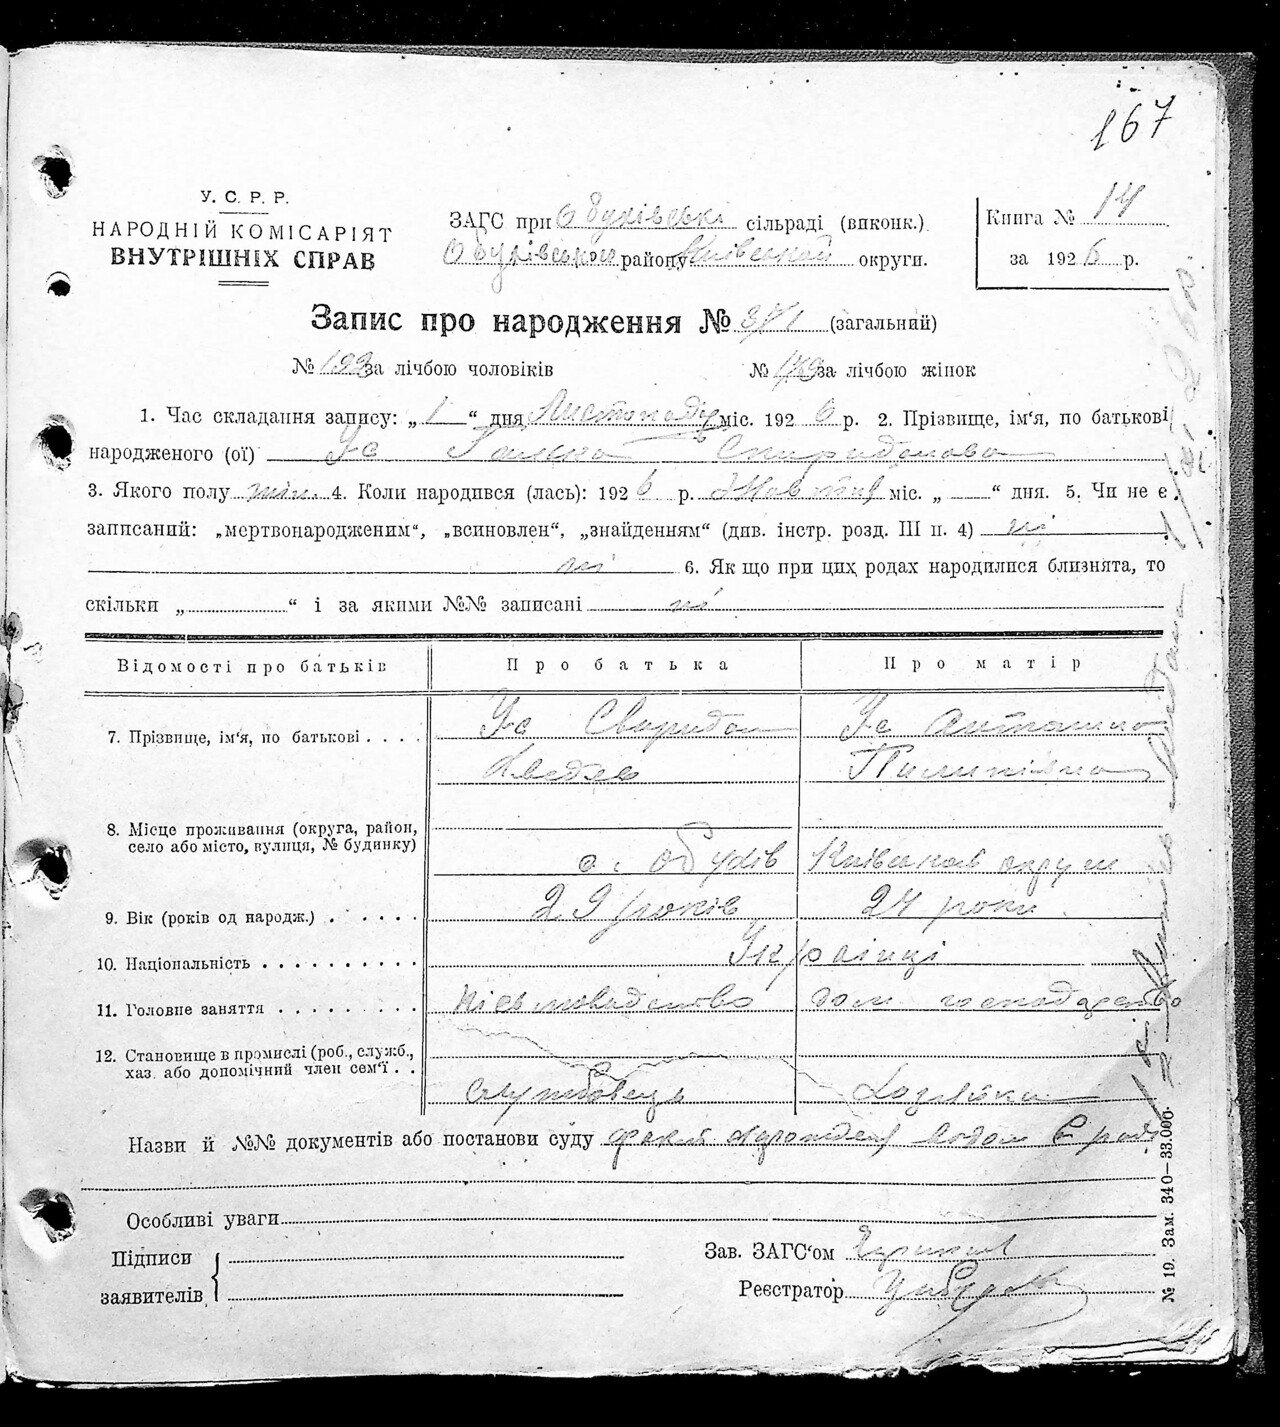 167
У. С. Р. Р.
НАРОДНІЙ КОМІСАРІЯТ
ВНУТРІШНІХ СПРАВ
ЗАГС при Обухівські сільраді (виконк.)
Обухівськой району Київської округи.
Книга № 14
за 1926 р.
Запис про народження № 371 (загальний)
№ за лічбою чоловіків
№ за лічбою жінок
1. Час складання запису: „1“ дня Листопаду міс. 1926 р. 2. Прізвище, ім'я, по батькові
народженого (ої) Ус Галька Спиридонова
3. Якого полу жін. 4. Коли народився (лась): 1926 р. Жовтня міс. „—“ дня. 5. Чи не є
записаний: „мертвонародженим“, „всиновлен“, „знайденням“ (див. інстр. розд. III п. 4) ні
ні 6. Як що при цих родах народилися близнята, то
скільки „ “ і за якими №№ записані ні
Відомості про батьків Про батька Про матір
7. Прізвище, ім'я, по батькові Ус Свиридон Ус Антонина
Пилипівна
8. Місце проживання (округа, район,
село або місто, вулиця, № будинку) с. Обухів Київської округи
9. Вік (років од народж.) 29 років 24 роки
10. Національність Українці
11. Головне заняття письмоводство дом господарство
12. Становище в промислі (роб., служб.,
хаз. або допомічний член сем'ї) службовець Хозяйка
Назви й №№ документів або постанови суду
Особливі уваги
Підписи
заявителів
Зав. ЗАГС'ом
Реєстратор
№ 19. Зам. 340—33.000